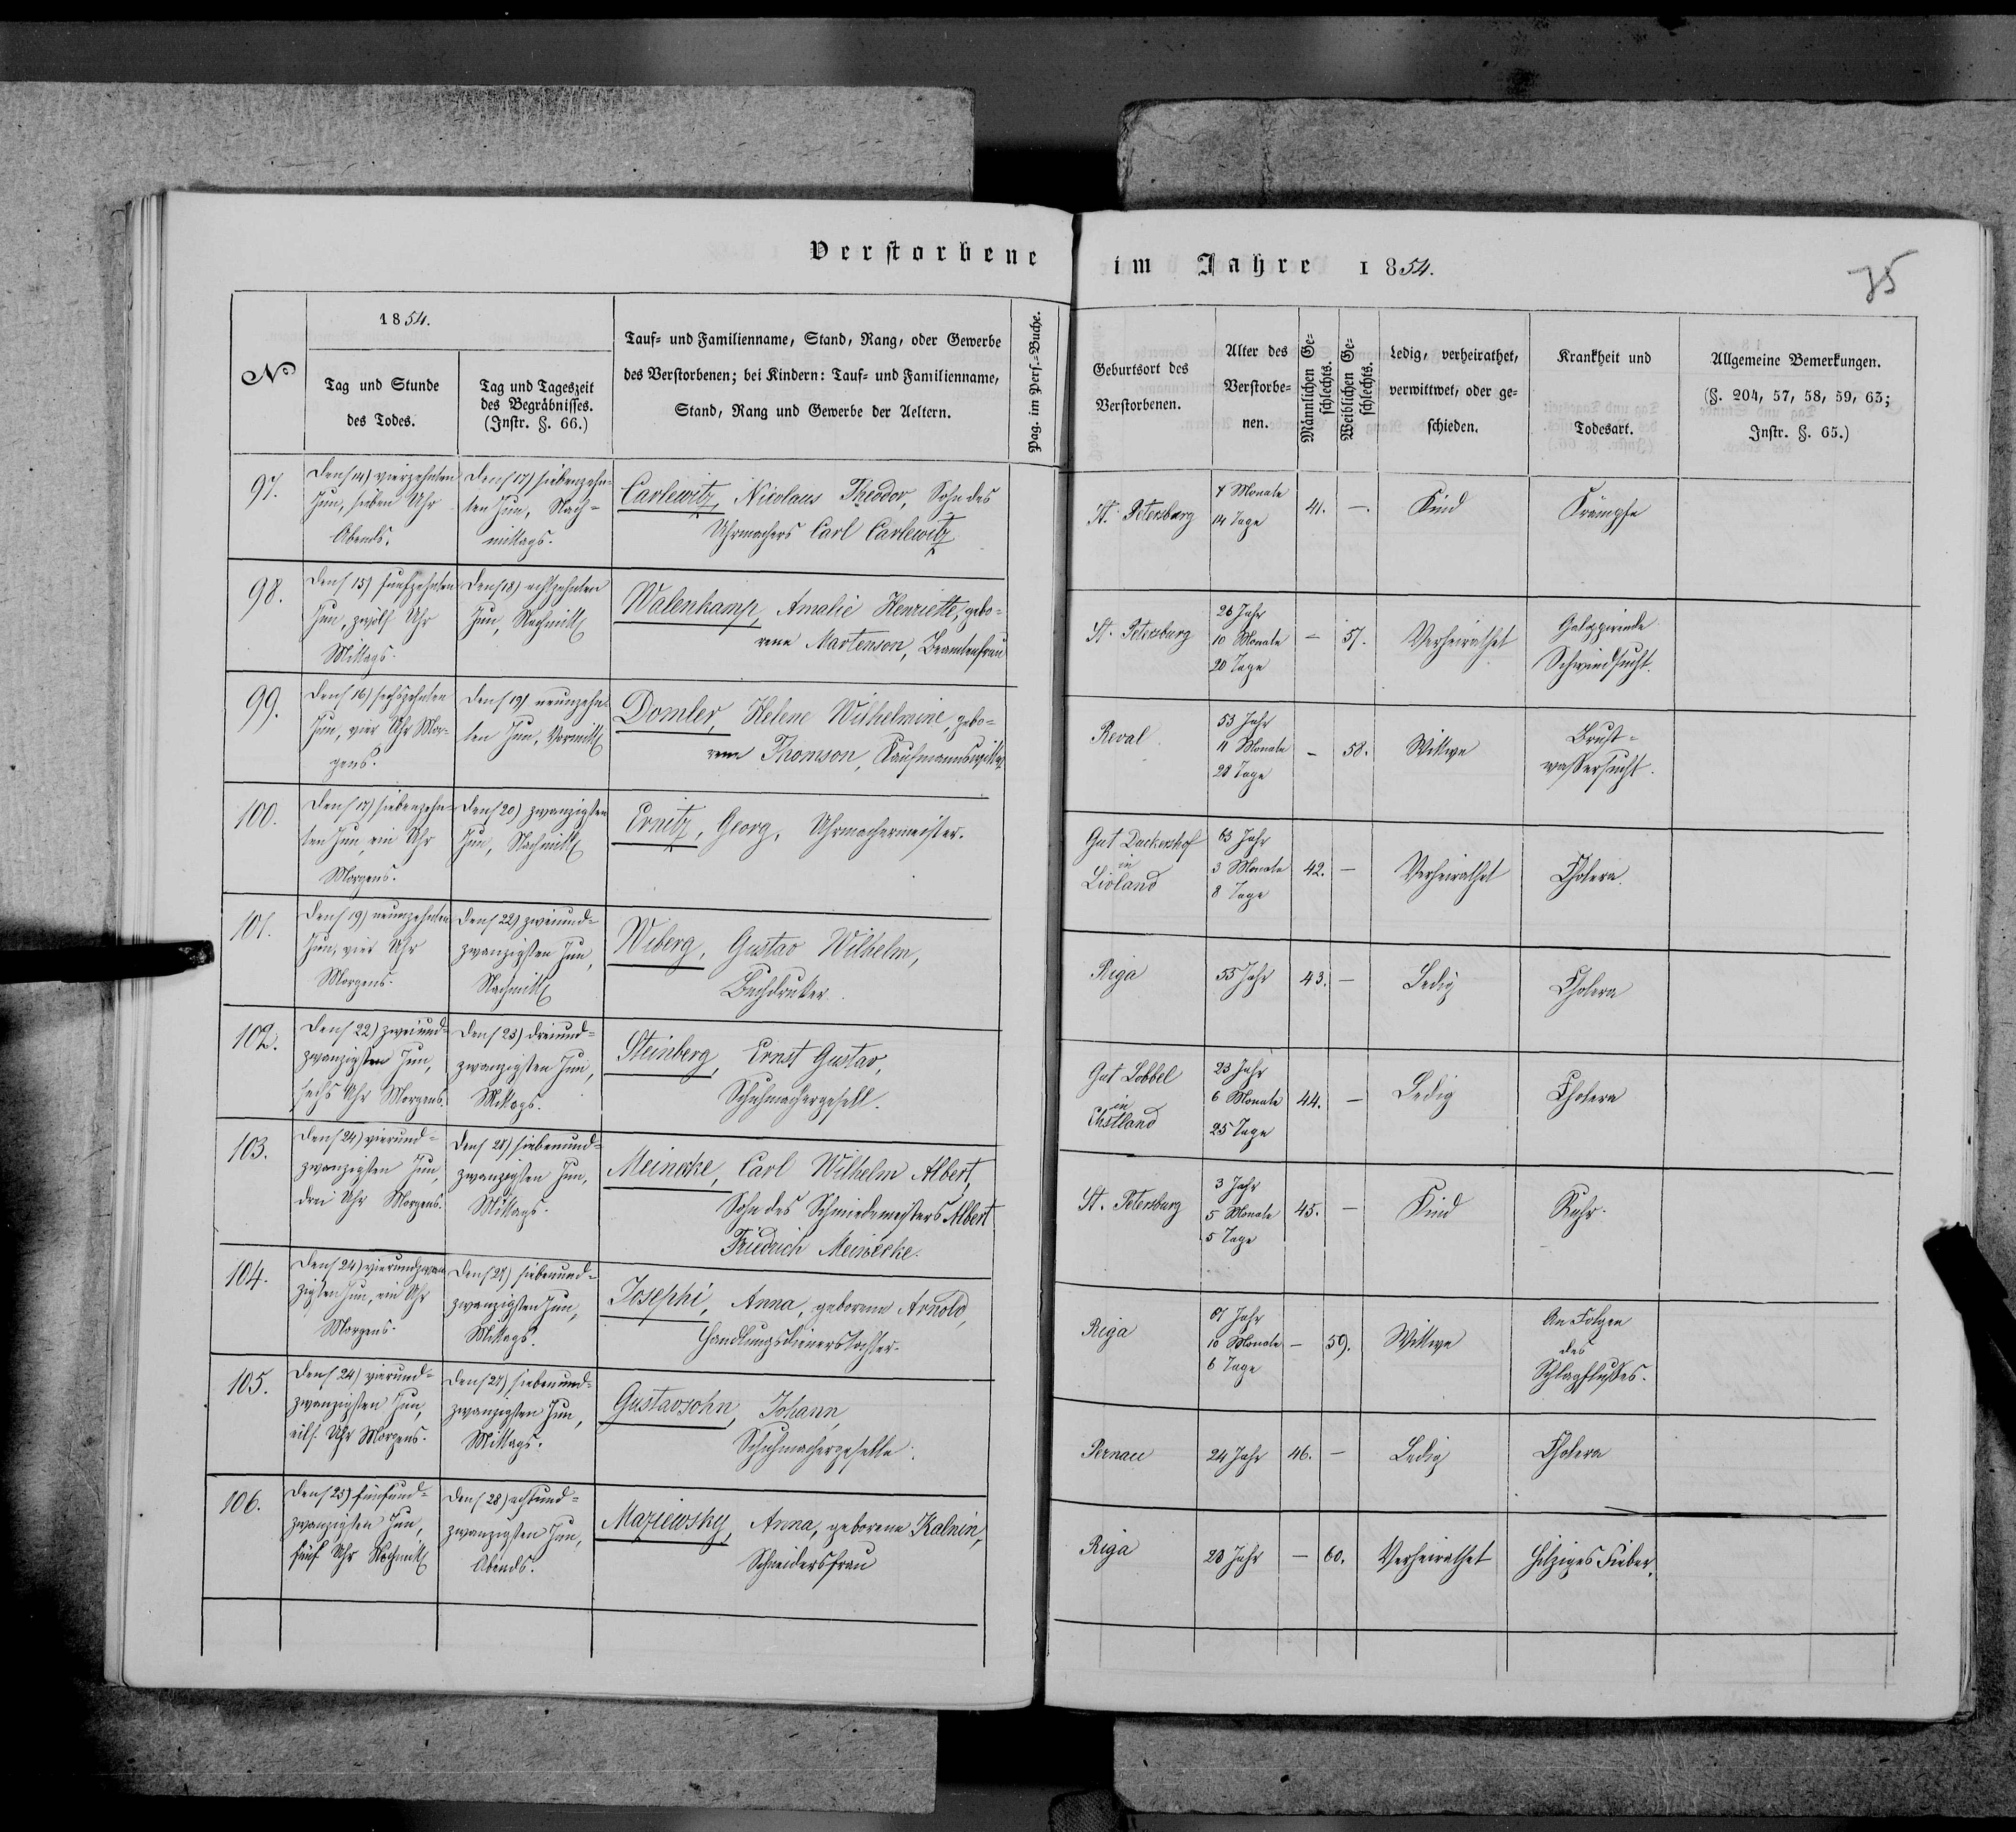 Verstorbene im Jahre 1854.
35
N°
1854.
Tag und Stunde
des Todes.
Tag und Tageszeit
des Begräbnisses.
(Instr. §. 66.)
Tauf- und Familienname, Stand, Rang, oder Gewerbe
des Verstorbenen; bei Kindern: Tauf- und Familienname,
Stand, Rang und Gewerbe der Aeltern.
Pag. im Pers.-Buche.
Geburtsort des
Verstorbenen.
Alter des
Verstorbe-
nen.
Männlichen Ge-
schlechts.
Weiblichen Ge-
schlechts.
Ledig, verheirathet,
verwittwet, oder ge-
schieden.
Krankheit und
Todesart.
Allgemeine Bemerkungen.
(§. 204, 57, 58, 59, 63;
Instr. §. 65.)
97.
Den (14) vierzehnten
Jun, sieben Uhr
Abends.
Den (17) siebenzehn-
ten Jun, Nach-
mittags.
Carlewitz, Nicolaus Theodor, Sohn des
Uhrmachers Carl Carlewitz
St. Petersburg
Monate
14 Tage
41.
—
Kind
Krämpfe
98.
Den (15) funfzehnten
Jun, zwölf Uhr
Mittags.
Den (18) achtzehnten
Jun, Nachmitt
Walenkamp, Amalie Henriette, gebo-
rene Martenson, Beamtenfrau
St. Petersburg
26 Jahr
10 Monate
20 Tage
—
57.
Verheirathet
Galoppirende
Schwindsucht.
99.
Den (16) sechszehnten
Jun, vier Uhr Mor-
gens.
Den (19) neunzehn-
ten Jun, Vormitt
Domler, Helene Wilhelmine, gebo-
rene Thomson, Kaufmannswittwe
Reval
53 Jahr
11 Monate
28 Tage
—
58.
Wittwe
Brust-
wassersucht.
100.
Den (17) siebenzehn-
ten Jun, ein Uhr
Morgens.
Den (20) zwanzigsten
Jun, Nachmitt
Ernitz, Georg, Uhrmachermeister.
Gut Duckershof
in
Livland
63 Jahr
3 Monate
8 Tage
42.
—
Verheirathet
Cholera.
101.
Den (19) neunzehnten
Jun, vier Uhr
Morgens.
Den (22) zweiund-
zwanzigsten Jun,
Nachmitt
Wiberg, Gustav Wilhelm,
Buchdruker.
Riga
55 Jahr
43.
—
Ledig
Cholera
102.
Den (22) zweiund-
zwanzigsten Jun,
sechs Uhr Morgens.
Den (23) dreiund-
zwanzigsten Jun,
Mittags.
Steinberg, Ernst Gustav,
Schuhmachergesell.
Gut Lobbel
in
Ehstland
23 Jahr
6 Monate
25 Tage
44.
—
Ledig
Cholera
103.
Den (24) vierund-
zwanzigsten Jun,
drei Uhr Morgens.
Den (27) siebenund-
zwanzigsten Jun,
Mittags.
Meinecke, Carl Wilhelm Albert,
Sohn des Schmiedemeisters Albert
Friedrich Meinecke.
St. Petersburg
3 Jahr
5 Monate
5 Tage
45.
—
Kind
Ruhr.
104.
Den (24) vierundzwan-
zigsten Jun, ein Uhr
Morgens.
Den (27) siebenund-
zwanzigsten Jun,
Mittags.
Josephi, Anna, geborene Arnold,
Handlungsdienerstochter.
Riga
67 Jahr
10 Monate
6 Tage
—
59.
Wittwe
An Folgen
des
Schlagflusses.
105.
Den (24) vierund-
zwanzigsten Jun,
eilf Uhr Morgens.
Den (27) siebenund-
zwanzigsten Jun,
Mittags.
Gustavsohn, Johann,
Schuhmachergeselle.
Pernau
24 Jahr
46.
—
Ledig
Cholera
106.
Den (25) fünfund-
zwanzigsten Jun,
fünf Uhr Nachmitt
Den (28) achtund-
zwanzigsten Jun,
Abends.
Maziewsky, Anna, geborene Kalnin,
Schneidersfrau
Riga
28 Jahr
—
60.
Verheirathet
Hitziges Fieber.